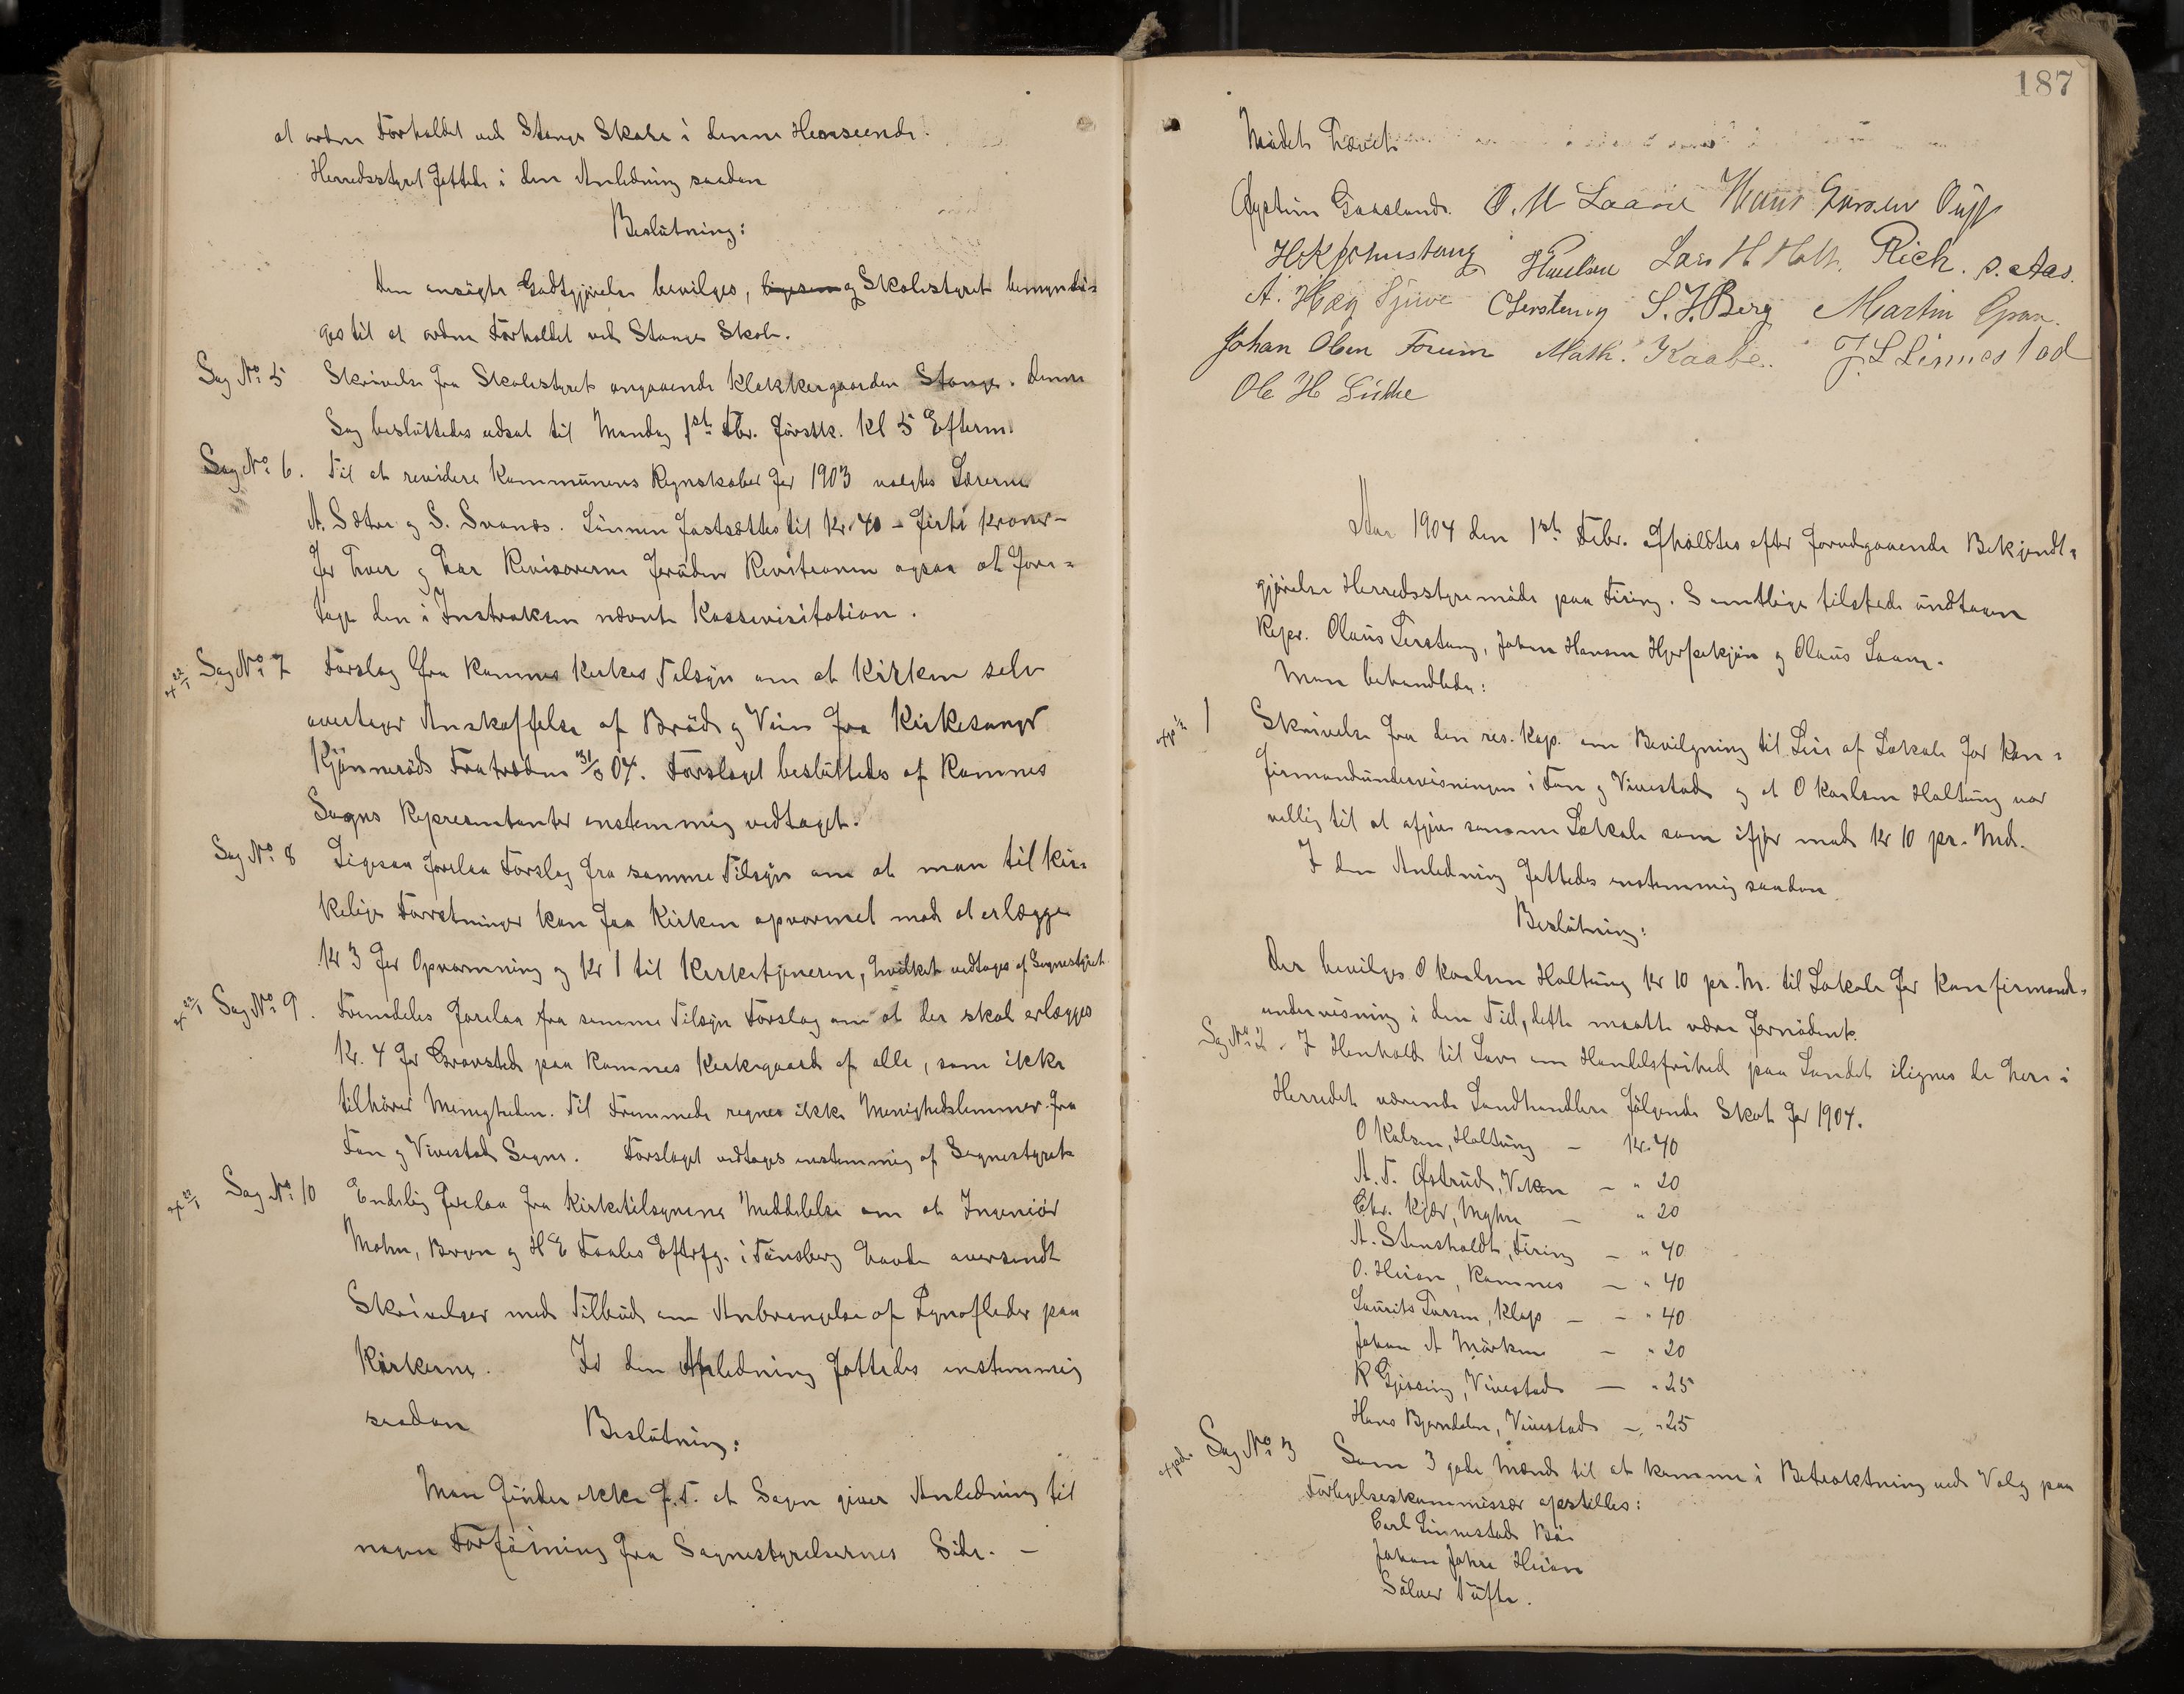 at ordne Forholdet ved Stange Skole i denne Henseende.
Herredsstyret fattede i den Anledning saadan
Beslutning:
Den ansøgte Godtgjørelse bevilges, ligesom og Skolestyret bemyndi-
ges til at ordne Forholdet ved Stange Skole.
Sag No 5 Skrivelse fra Skolestyret angaaende Klokkergaarden Stange. Denne
Sag besluttedes udsat til Mandag 1st Fbr. førstk. Kl 5 Efterm.
Sag No 6. Til at revidere Kommunens Regnskaber for 1903 valgtes Lærerne
A. Sætre og S. Svanæs. Lønnen fastsættes til Kr. 40 – firti Kroner –
for hver og har Revisorerne foruden Revisionen ogsaa at fore-
tage den i Instruksen nævnte Kassevisitation.
Sag No 7 Forslag fra Ramnes Kirkes Tilsyn om at Kirken selv
overtager Anskaffelse af Brød og Vin fra Kirkesanger
Kjønnerøds Fratræden 31/3 04. Forslaget besluttedes af Ramnes
Sogns Repræsentanter enstemmig vedtaget.
Sag No 8 Ligesaa forelaa Forslag fra samme Tilsyn om at man til kir-
kelige Forretninger kan faa Kirken opvarmet mod at erlægge
Kr 3 for Opvarmning og Kr 1 til Kirketjeneren, hvilket vedtages af Sognestyret
Sag No 9. Fremdeles forelaa fra samme Tilsyn Forslag om at der skal erlægges
Kr. 4 for Gravsted paa Ramnes Kirkegaard af alle, som ikke
tilhører Menigheden. Til Fremmede regnes ikke Menighedslemmer fra
Fon og Vivestad Sogne. Forslaget vedtages enstemmig af Sognestyret
Sag No 10 Endelig forelaa fra Kirketilsynene Meddelelse om at Ingeniør
Mohn, Bergen og H E Foales Eftrfg. i Tønsberg havde oversendt
Skrivelser med Tilbud om Anbringelse af Lynafleder paa
Kirkerne. I den Anledning fattedes enstemmig
saadan Beslutning:
Man finder ikke f. T. at Sagen giver Anledning til
nogen Forføining fra Sognestyrelsernes Side. –
187
Mødet hævet.
Øystein Gaaslund. O. M Laane Hans Larsen
Lars H Holt. Rich. S. Aas.
A. Hæg Sjuve S. J. Berg Martin Gran.
Johan Olsen Foruim Math. Kaabe. J. L Linnestad
Ole H Lütke
Aar 1904 den 1st Febr. afholdtes efter forudgaaende Bekjendt-
gjørelse Herredsstyremøde paa Firing. Samtlige tilstede undtagen
Repr. Olaus Gerstang, Johan Hansen Hjerpekjøn og Olaus Laane.
Man behandlede:
1 Skrivelse fra den res. Kap. om Bevilgning til Leie af Lokale for Kon-
firmandundervisningen i Fon og Vivestad og at O Karlsen Haltung var
villig til at afgive samme Lokale som ifjor mod Kr 10 pr. Md.
I den Anledning fattedes enstemmig saadan
Beslutning:
Der bevilges O Karlsen Haltung Kr 10 pr. M. til Lokale for Konfirmand-
undervisning i den Tid, dette maatte være fornødent.
Sag No 2. I Henhold til Lov om Handelsfrihed paa Landet ilignes de her i
Herredet værende Landhandlere følgende Skat for 1904.
O Kalsen, Haltung – Kr. 40
A. T. Østrud, Viken – " 20
Chr. Kjær, Myhre – " 20
A. Stensholdt, Firing – " 40
O. Heian, Ramnes – " 40
Laurits Larsen, Klop – – " 40
Johan A Mørken – " 20
R Gjessing, Vivestad – " 25
Hans Bjørndalen, Vivestad – " 25
Sag No 3 Som 3 gode Mænd til at komme i Betraktning ved Valg paa
Forligelseskommissær opstilles:
Carl Linnestad Bø
Johan Jahre Heian
Sølver Tufte.